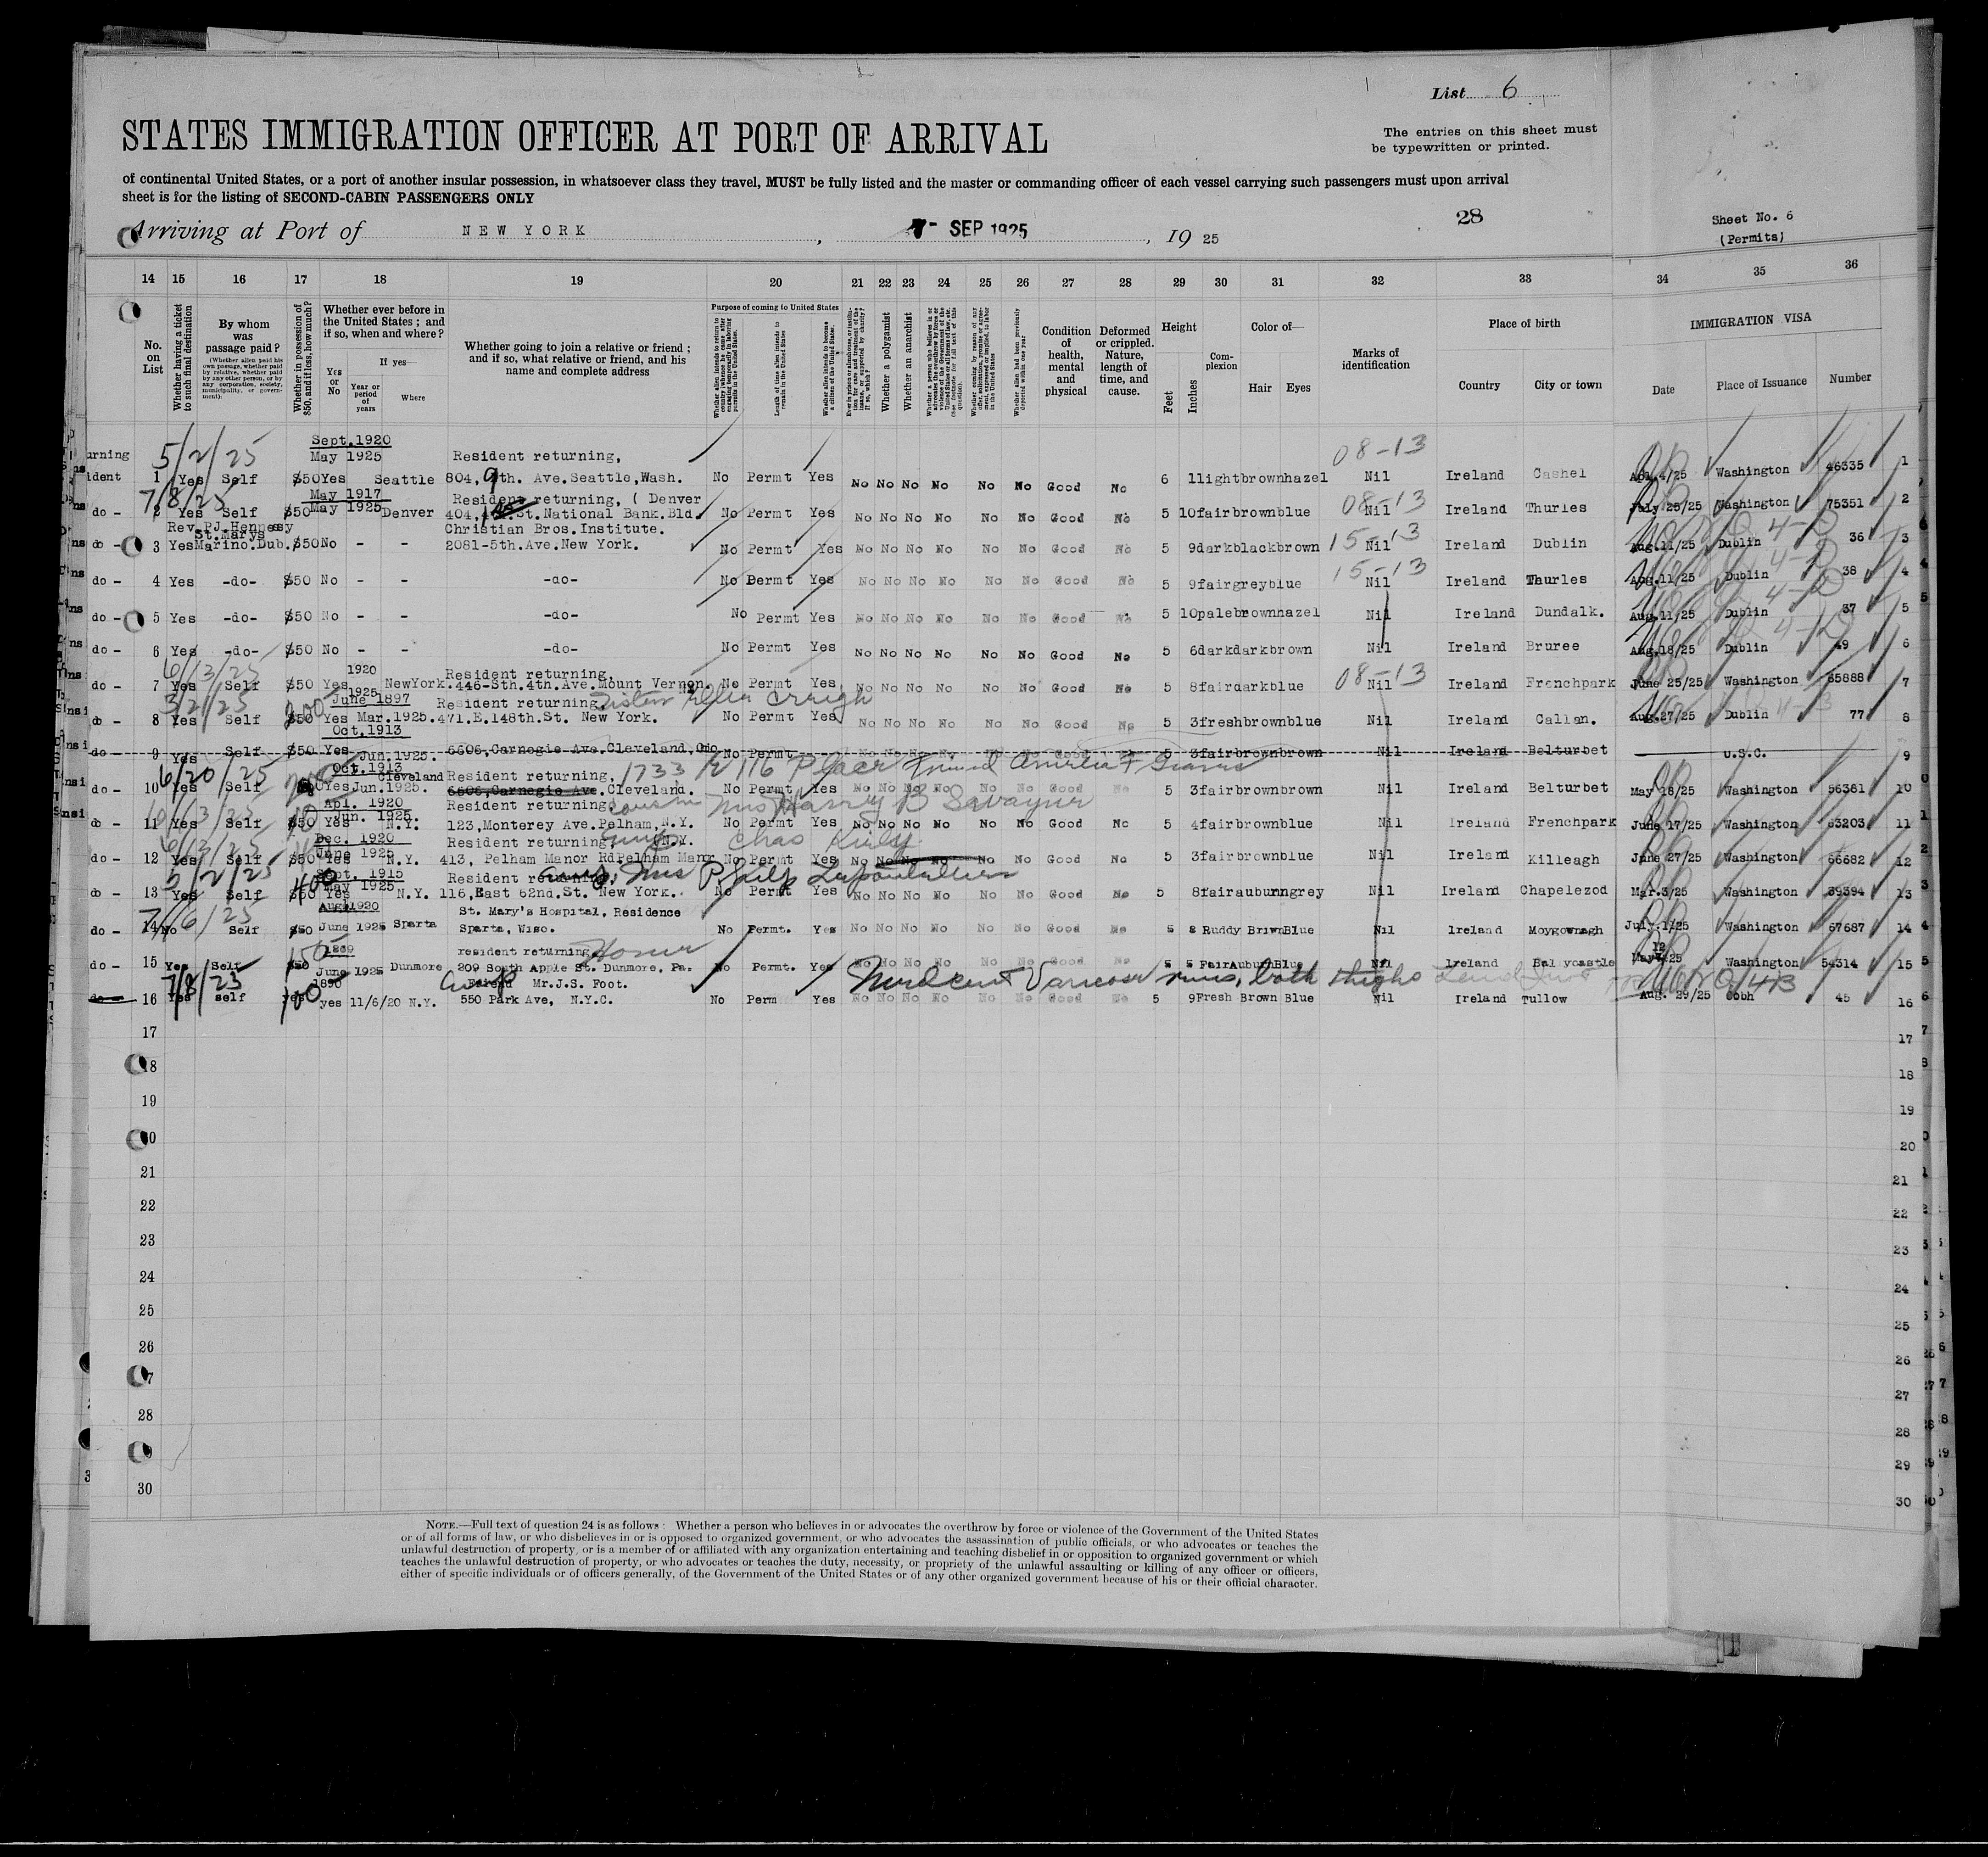 List 6
The entries on this sheet must
be typewritten or printed.
STATES IMMIGRATION OFFICER AT PORT OF ARRIVAL
of continental United States, or a port of another insular possession, in whatsoever class they travel, MUST be fully listed and the master or commanding officer of each vessel carrying such passengers must upon arrival
sheet is for the listing of SECOND-CABIN PASSENGERS ONLY
28
Sheet No. 6
(Permits)
Arriving at Port of NEW YORK, 7- SEP 1925, 19 25
14 15 16 17 18 19 20 21 22 23 24 25 26 27 28 29 30 31 32 33 34 35 36
No. on List
Whether having a ticket to such final destination
By whom was passage paid?
(Whether alien paid his own passage, whether paid by relative, whether paid by any other person, or by any corporation, society, municipality, or government)
Whether in possession of $50, and if less, how much?
Whether ever before in the United States; and if so, when and where?
Yes or No
If yes—
Year or period of years
Where
Whether going to join a relative or friend; and if so, what relative or friend, and his name and complete address
Purpose of coming to United States
Length of time alien intends to remain in the United States
Whether alien intends to become a citizen of the United States
Whether a polygamist
Whether an anarchist
Condition of health, mental and physical
Deformed or crippled. Nature, length of time, and cause.
Height
Feet
Inches
Complexion
Color of—
Hair Eyes
Marks of identification
Place of birth
Country City or town
IMMIGRATION VISA
Date Place of Issuance Number
5/2/25 Sept.1920 May 1925 Resident returning, 08-13
1 Yes Self $50 Yes Seattle 804, 9th. Ave.Seattle,Wash. No Permt Yes No No No No No No Good No 6 1 light brown hazel Nil Ireland Cashel Apl.4/25 Washington 46335 1
7/8/25 May 1917 May 1925 Resident returning, ( Denver 08-13
do - 2 Yes Self $50 Denver 404, St.National Bank.Bld. No Permt Yes No No No No No No Good No 5 10 fair brown blue Nil Ireland Thurles July 25/25 Washington 75351 2
Rev.PJ.Hennessy St.Marys Christian Bros.Institute. 15-13
do - 3 Yes Marino.Dub. $50 No - - 2081-5th.Ave.New York. No Permt Yes No No No No No No Good No 5 9 dark black brown Nil Ireland Dublin Aug.11/25 Dublin 36 3
15-13
do - 4 Yes -do- $50 No - - -do- No Permt Yes No No No No No No Good No 5 9 fair grey blue Nil Ireland Thurles Aug.11/25 Dublin 38 4
do - 5 Yes -do- $50 No - - -do- No Permt Yes No No No No No No Good No 5 10 pale brown hazel Nil Ireland Dundalk. Aug.11/25 Dublin 37 5
do - 6 Yes -do- $50 No - - -do- No Permt Yes No No No No No No Good No 5 6 dark dark brown Nil Ireland Bruree Aug.18/25 Dublin 49 6
6/13/25 1920 1925 Resident returning, 08-13
do - 7 Yes Self $50 Yes NewYork. 446-Sth.4th.Ave.Mount Vernon. No Permt Yes No No No No No No Good No 5 8 fair dark blue Nil Ireland Frenchpark June 25/25 Washington 65888 7
3/2/25 June 1897 Resident returning Sister Ellen
do - 8 Yes Self $50 Yes Mar.1925. 471.E.148th.St. New York. No Permt Yes No No No No No No Good No 5 3 fresh brown blue Nil Ireland Callan. Aug.27/25 Dublin 77 8
Oct.1913
do - 9 Yes Self $50 Yes Jun.1925. 6606,Carnegie Ave.Cleveland,Ohio No Permt No No No No No No Good No 5 3 fair brown brown Nil Ireland Belturbet U.S.C. 9
6/20/25 Oct.1913 Cleveland Resident returning, 1733 E 116 Place Friend
do - 10 Yes Self Yes Jun.1925. 6606,Carnegie Ave.Cleveland. No Permt Yes No No No No No No Good No 5 3 fair brown brown Nil Ireland Belturbet May 18/25 Washington 56361 10
6/13/25 Apl. 1920 Jun. 1925. Resident returning, Cousin Mrs Harry B
do - 11 Yes Self $50 Yes N.Y. 123,Monterey Ave.Pelham,N.Y. No Permt Yes No No No No No No Good No 5 4 fair brown blue Nil Ireland Frenchpark June 17/25 Washington 63203 11
6/13/25 Dec. 1920 June 1925 Resident returning, N.Y. Chas
do - 12 Yes Self $50 Yes N.Y. 413, Pelham Manor Rd Pelham Manr No Permt Yes No No No No No No Good No 5 3 fair brown blue Nil Ireland Killeagh June 27/25 Washington 66682 12
5/2/25 400 Sept. 1915 May 1925 Resident returning, Mrs Philip
do - 13 Yes Self $50 Yes N.Y. 116,East 62nd.St. New York. No Permt Yes No No No No No No Good No 5 8 fair auburn grey Nil Ireland Chapelezod Mar.3/25 Washington 39394 13
7/6/25 Aug.1920 St. Mary's Hospital, Residence
do - 14 No Self $50 June 1925 Sparta Sparta, Wisc. No Permt. Yes No No No No No No Good No 5 8 Ruddy Brown Blue Nil Ireland Moygownagh July.1/25 Washington 67687 14
150 1889 resident returning Home
do - 15 Yes Self $50 June 1925 Dunmore 209 South Apple St. Dunmore, Pa. No Permt. Yes No No No No No No Good No 5 5 Fair Auburn Blue Nil Ireland Ballycastle May 12 25 Washington 54314 15
7/8/25 100 1890 Friend Mr.J.S. Foot. Med cert Varicose veins, both thighs
do 16 Yes self yes yes 11/6/20 N.Y. 550 Park Ave, N.Y.C. No Perm Yes No No No No No No Good No 5 9 Fresh Brown Blue Nil Ireland Tullow Aug. 29/25 Cobh 45 16
17 17
18 18
19 19
20 20
21 21
22 22
23 23
24 24
25 25
26 26
27 27
28 28
29 29
30 30
NOTE.—Full text of question 24 is as follows: Whether a person who believes in or advocates the overthrow by force or violence of the Government of the United States
or of all forms of law, or who disbelieves in or is opposed to organized government, or who advocates the assassination of public officials, or who advocates or teaches the
unlawful destruction of property, or is a member of or affiliated with any organization entertaining and teaching disbelief in or opposition to organized government or which
teaches the unlawful destruction of property, or who advocates or teaches the duty, necessity, or propriety of the unlawful assaulting or killing of any officer or officers,
either of specific individuals or of officers generally, of the Government of the United States or of any other organized government because of his or their official character.